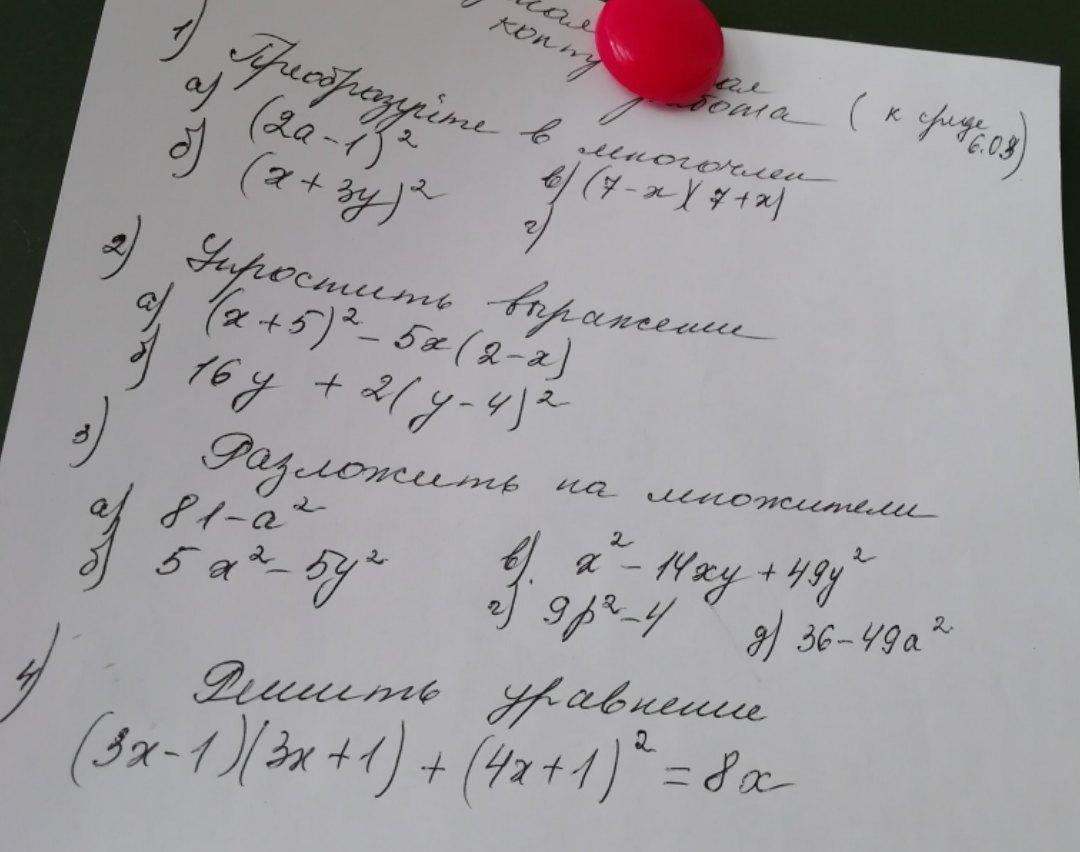 работа ( к среде
6.03)
1) Преобразуйте в многочлен
а) (2a-1)²
б) (x+3y)²
в) (7-x)(7+x)
г)
2) Упростить выражение
а) (x+5)² - 5x(2-x)
б) 16y + 2(y-4)²
3) Разложить на множители
а) 81-a²
б) 5x² - 5y²
в). x² - 14xy + 49y²
г) 9p² - 4
д) 36 - 49a²
4) Решить уравнение
(3x-1)(3x+1) + (4x+1)² = 8x